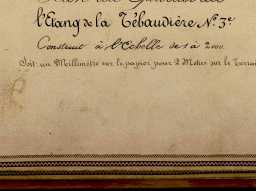 l'Etang de la Tébaudière N.º 3.e
Construit à l'Echelle de 1 à 2000
Soit: un Millimètre sur le papier pour 2 Mètres sur le Terrain